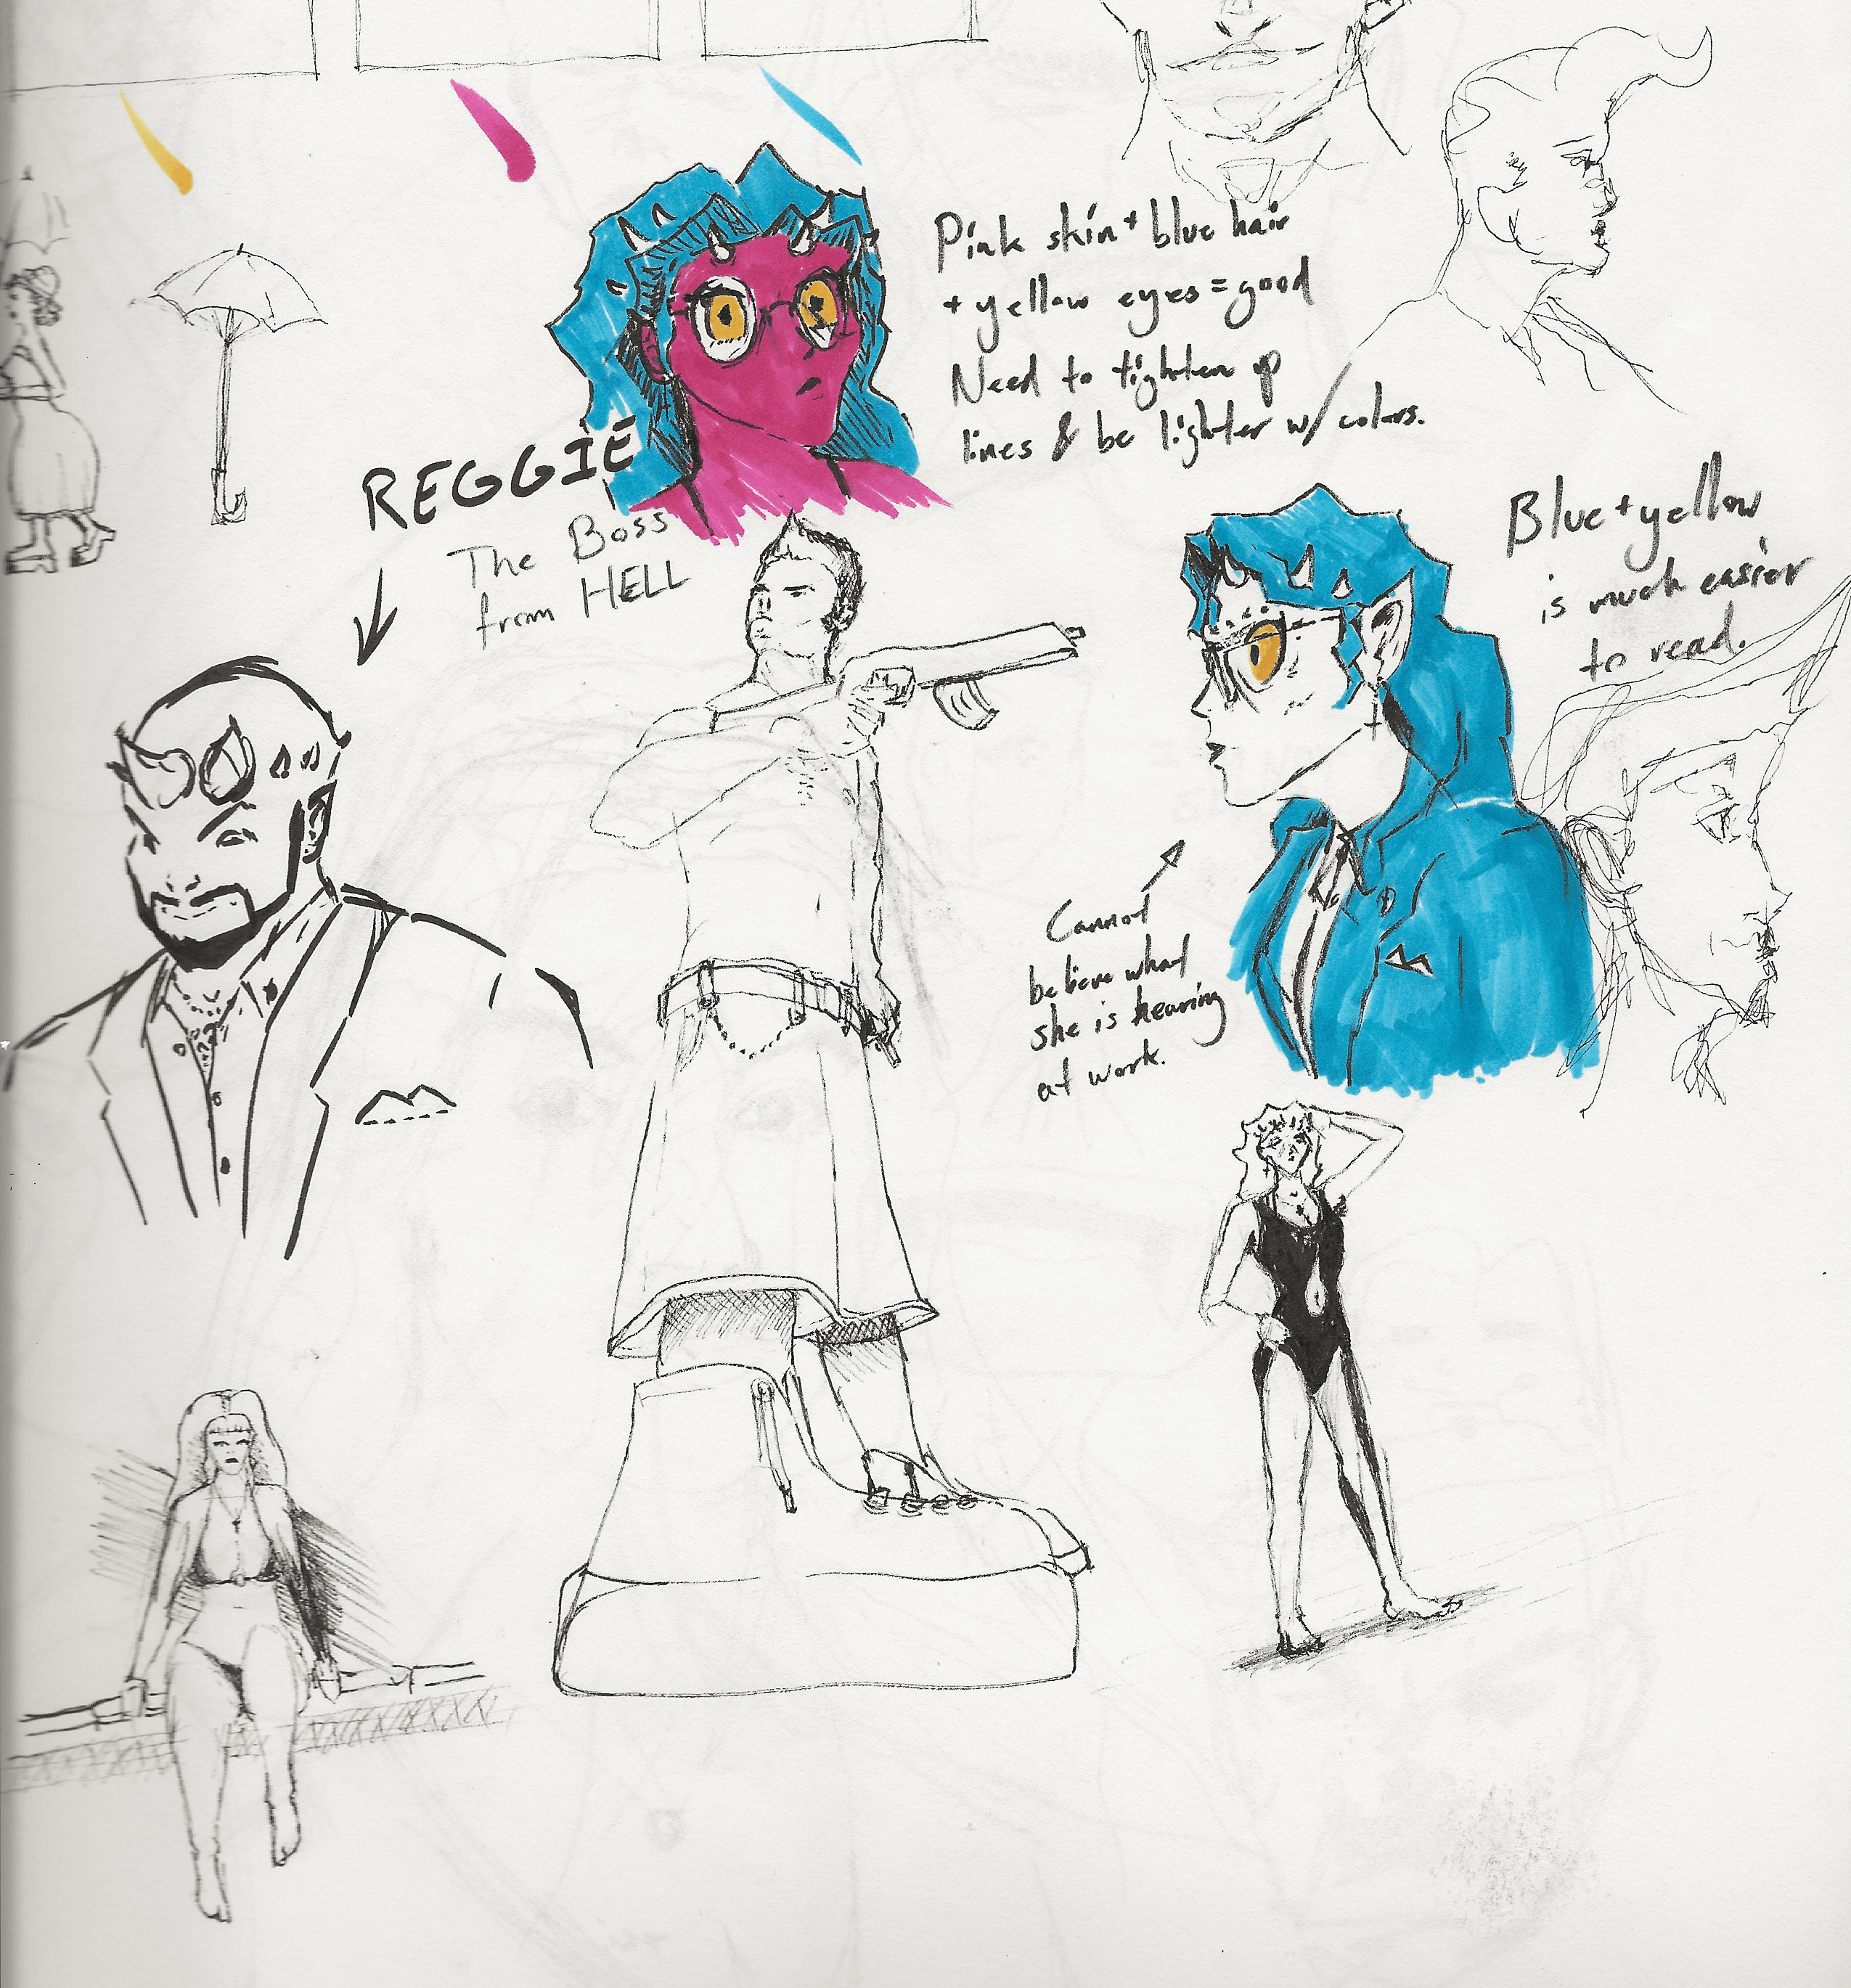 Pink skin + blue hair
+ yellow eyes = good
Need to tighten up
lines & be lighter w/ colors.
REGGIE
The Boss
from HELL
Blue + yellow
is much easier
to read.
Cannot
believe what
she is hearing
at work.